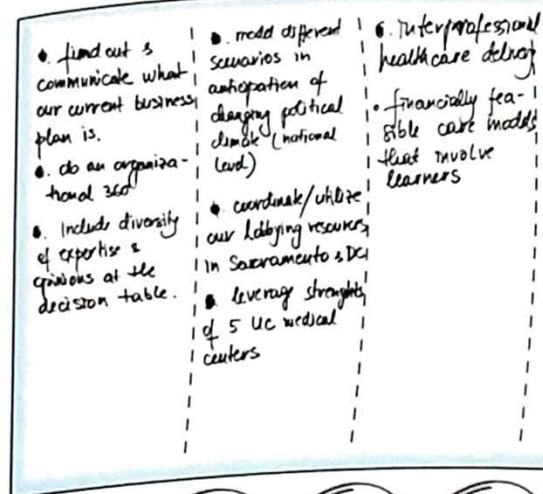 • find out &
communicate what
our current business
plan is.
• do an organiza-
tional 360
• Include diversity
of expertise &
opinions at the
decision table.
• model different
scenarios in
anticipation of
changing political
climate (national
level)
• coordinate/utilize
our lobbying resources
in Sacramento & DC
• leverage strenghts
of 5 UC medical
centers
• Interprofessional
healthcare delivery
• financially fea-
sible care models
that involve
learners